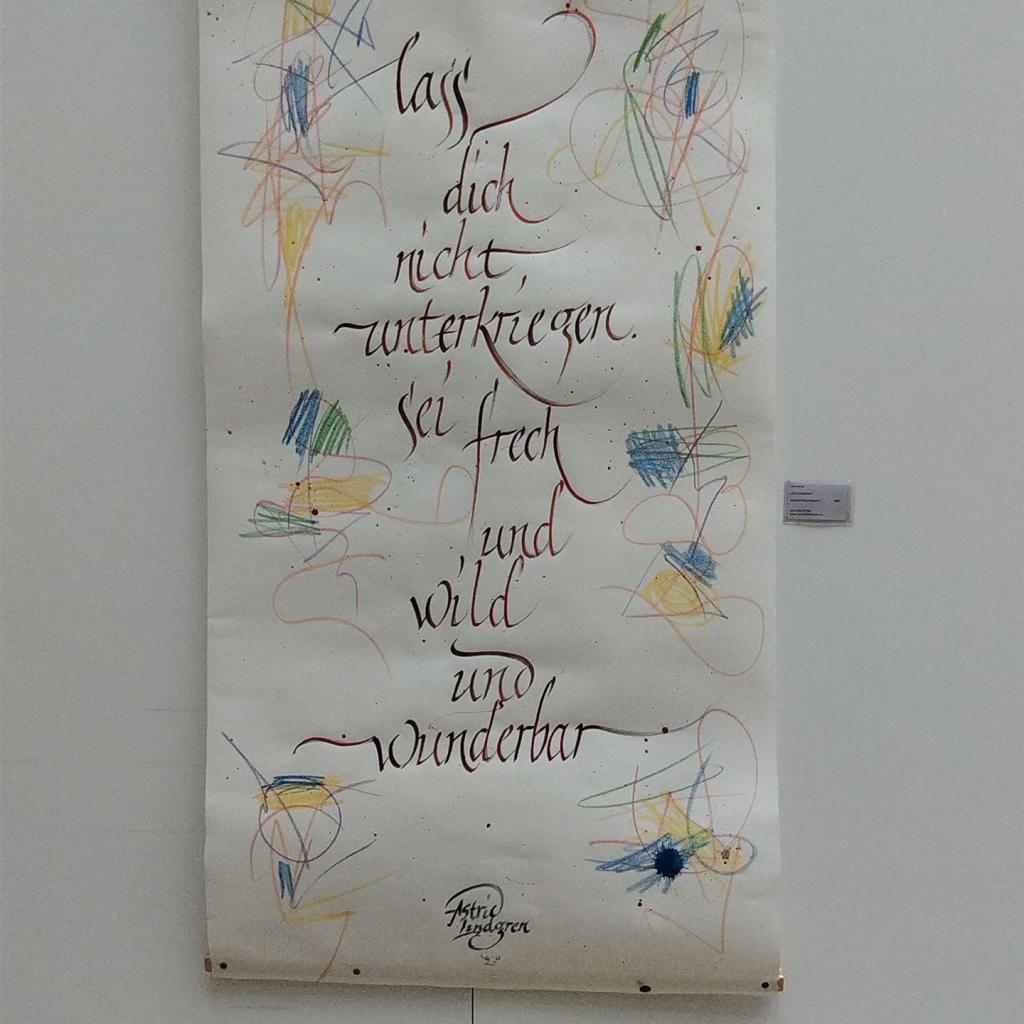 lass
dich
nicht
unterkriegen.
sei frech
und
wild
und
wunderbar
Astrid
Lindgren